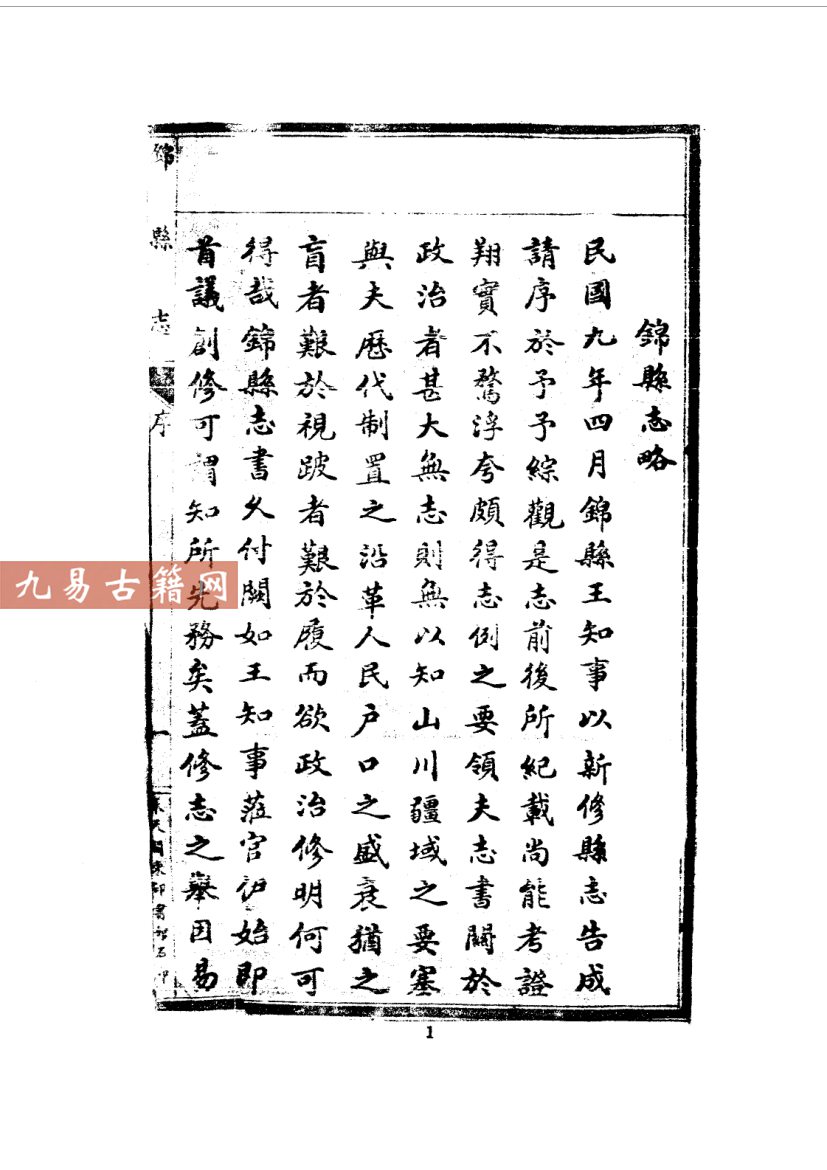 錦縣志略
民國九年四月錦縣王知事以新修縣志告成
請序於予予綜觀是志前後所紀載尚能考證
翔實不騖浮夸頗得志例之要領夫志書關於
政治者甚大無志則無以知山川疆域之要塞
與夫歷代制置之沿革人民户口之盛衰猶之
盲者艱於視跛者艱於履而欲政治修明何可
得哉錦縣志書久付闕如王知事蒞官伊始即
首議創修可謂知所先務矣蓋修志之舉因易
錦縣志
序
一
東印書 石印
九易古籍网
1